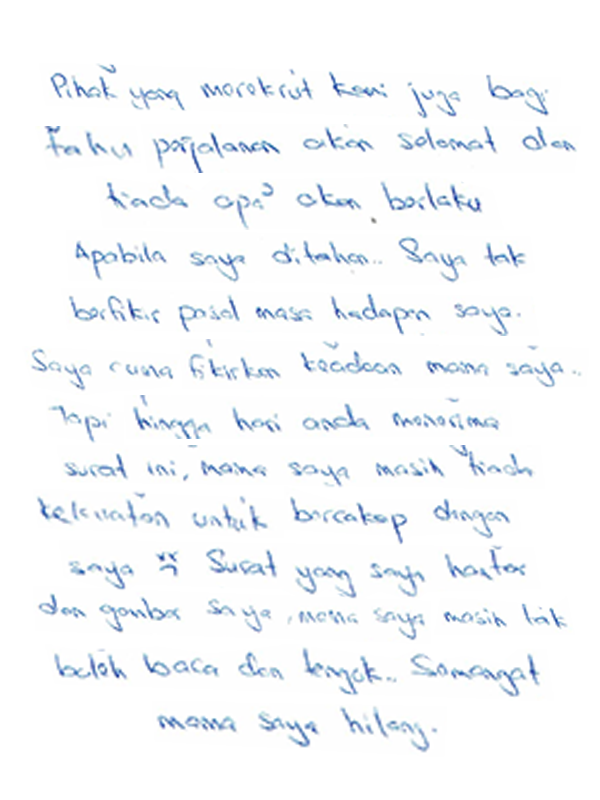 Pihak yang merekrut kami juga bagi
Tahu perjalanan akan selamat dan
tiada apa² akan berlaku
Apabila saya ditahan.. Saya tak
berfikir pasal masa hadapan saya.
Saya cuma fikirkan keadaan mama saya..
Tapi hingga hari anda menerima
surat ini, mama saya masih tiada
kekuatan untuk bercakap dengan
saya Surat yang saya hantar
dan gambar saya, mama saya masih tak
boleh baca dan tengok.. Semangat
mama saya hilang.